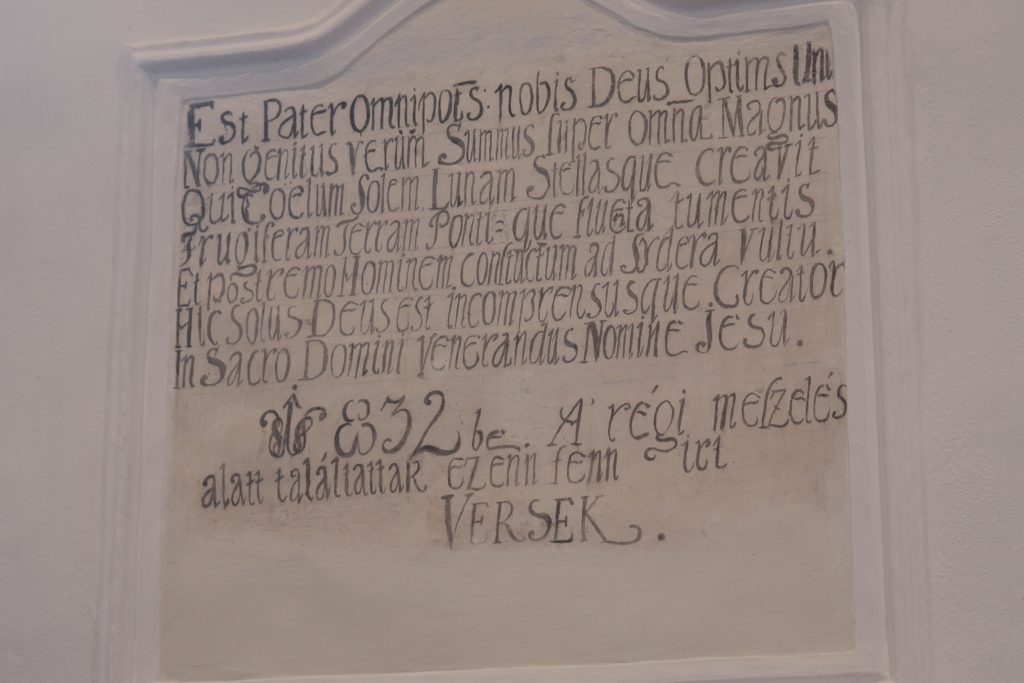 Est Pater Omnipots nobis Deus Optims Unu
Non genitus verum Summus super omna Magnus
Qui Coelum Solem Lunam Stellasque creavit
Frugiferam Terram Ponti-que flucta tumentis
Et postremo Hominem ad Sydera vultu.
Hic Solus Deus est incomprensusque Creator
In Sacro Domini venerandus Nomine Jesu.
1832 be. A' régi meſzelés
alatt találtattak ezenn fenn irt
VERSEK.